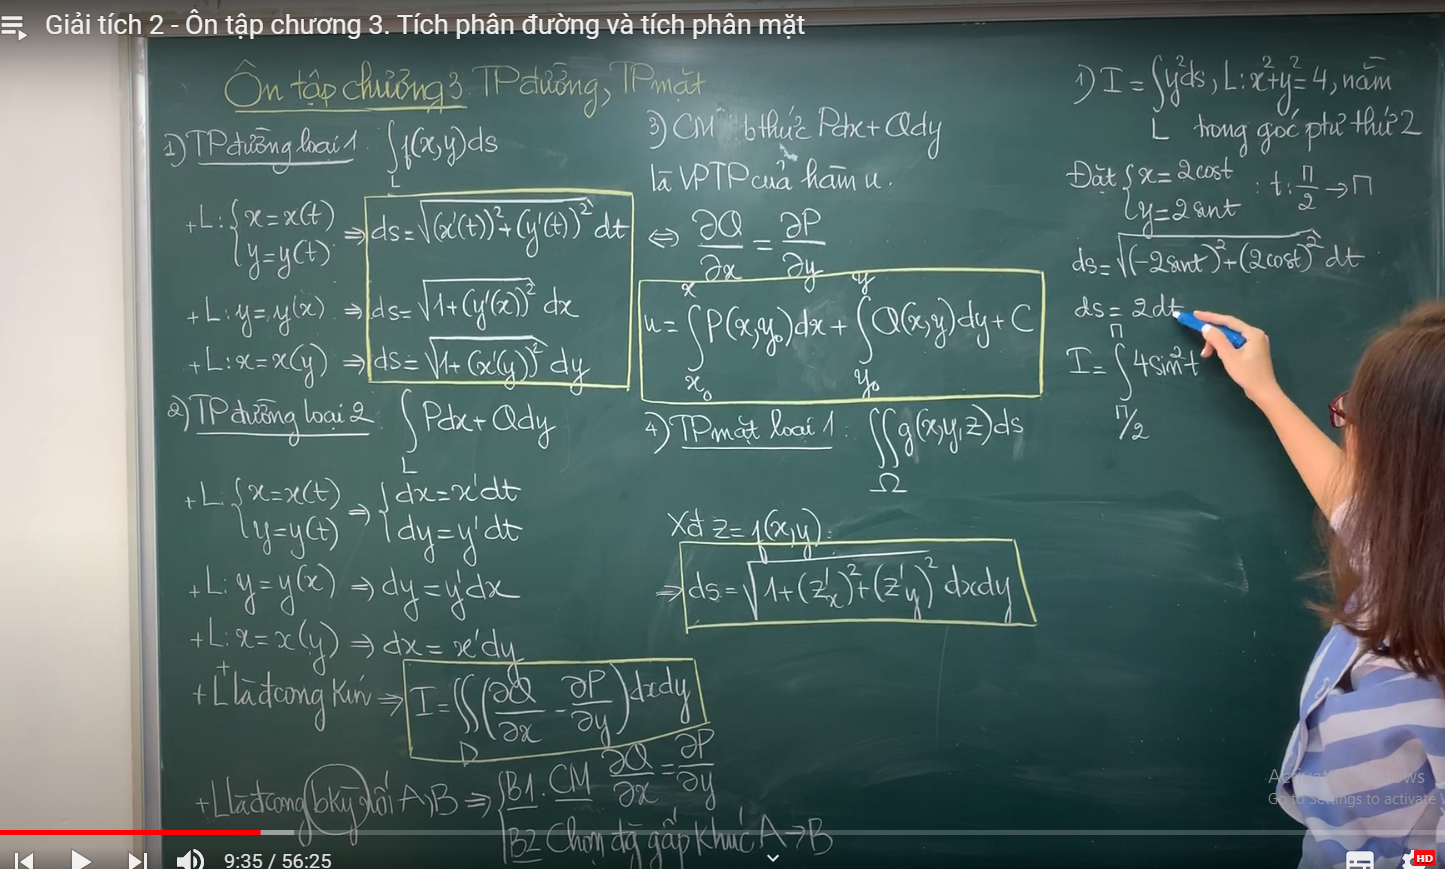 Giải tích 2 - Ôn tập chương 3. Tích phân đường và tích phân mặt
Ôn tập chương 3 TP đường, TP mặt
1) TP đường loại 1: ∫_L f(x,y)ds
+ L: { x = x(t) y = y(t) ⇒ ds = √((x'(t))² + (y'(t))²) dt
+ L: y = y(x) ⇒ ds = √(1+(y'(x))²) dx
+ L: x = x(y) ⇒ ds = √(1+(x'(y))²) dy
2) TP đường loại 2: ∫_L Pdx + Qdy
+ L: { x = x(t) y = y(t) ⇒ { dx = x'dt dy = y'dt
+ L: y = y(x) ⇒ dy = y'dx
+ L: x = x(y) ⇒ dx = x'dy
+ L⁺ là đcong kín ⇒ I = ∬_D (∂Q/∂x - ∂P/∂y) dxdy
+ L là đcong bkỳ nối A,B ⇒ { B1. CM ∂Q/∂x = ∂P/∂y
B2 Chọn đg gấp khúc A → B
3) CM bthức Pdx + Qdy
là VPTP của hàm u.
⇔ ∂Q/∂x = ∂P/∂y
u = ∫_{x₀}^{x} P(x,y₀)dx + ∫_{y₀}^{y} Q(x,y)dy + C
4) TP mặt loại 1: ∬_Ω g(x,y,z)ds
Xđ z = f(x,y).
⇒ ds = √(1+(z'x)²+(z'y)²) dxdy
1) I = ∫_L y²ds, L: x²+y² = 4, nằm
trong góc ptư thứ 2
Đặt { x = 2cost y = 2sint : t: π/2 → π
ds = √((-2sint)²+(2cost)²) dt
ds = 2dt
I = ∫_{π/2}^{π} 4sin²t
Activate Windows
Go to Settings to activate
9:35 / 56:25
HD